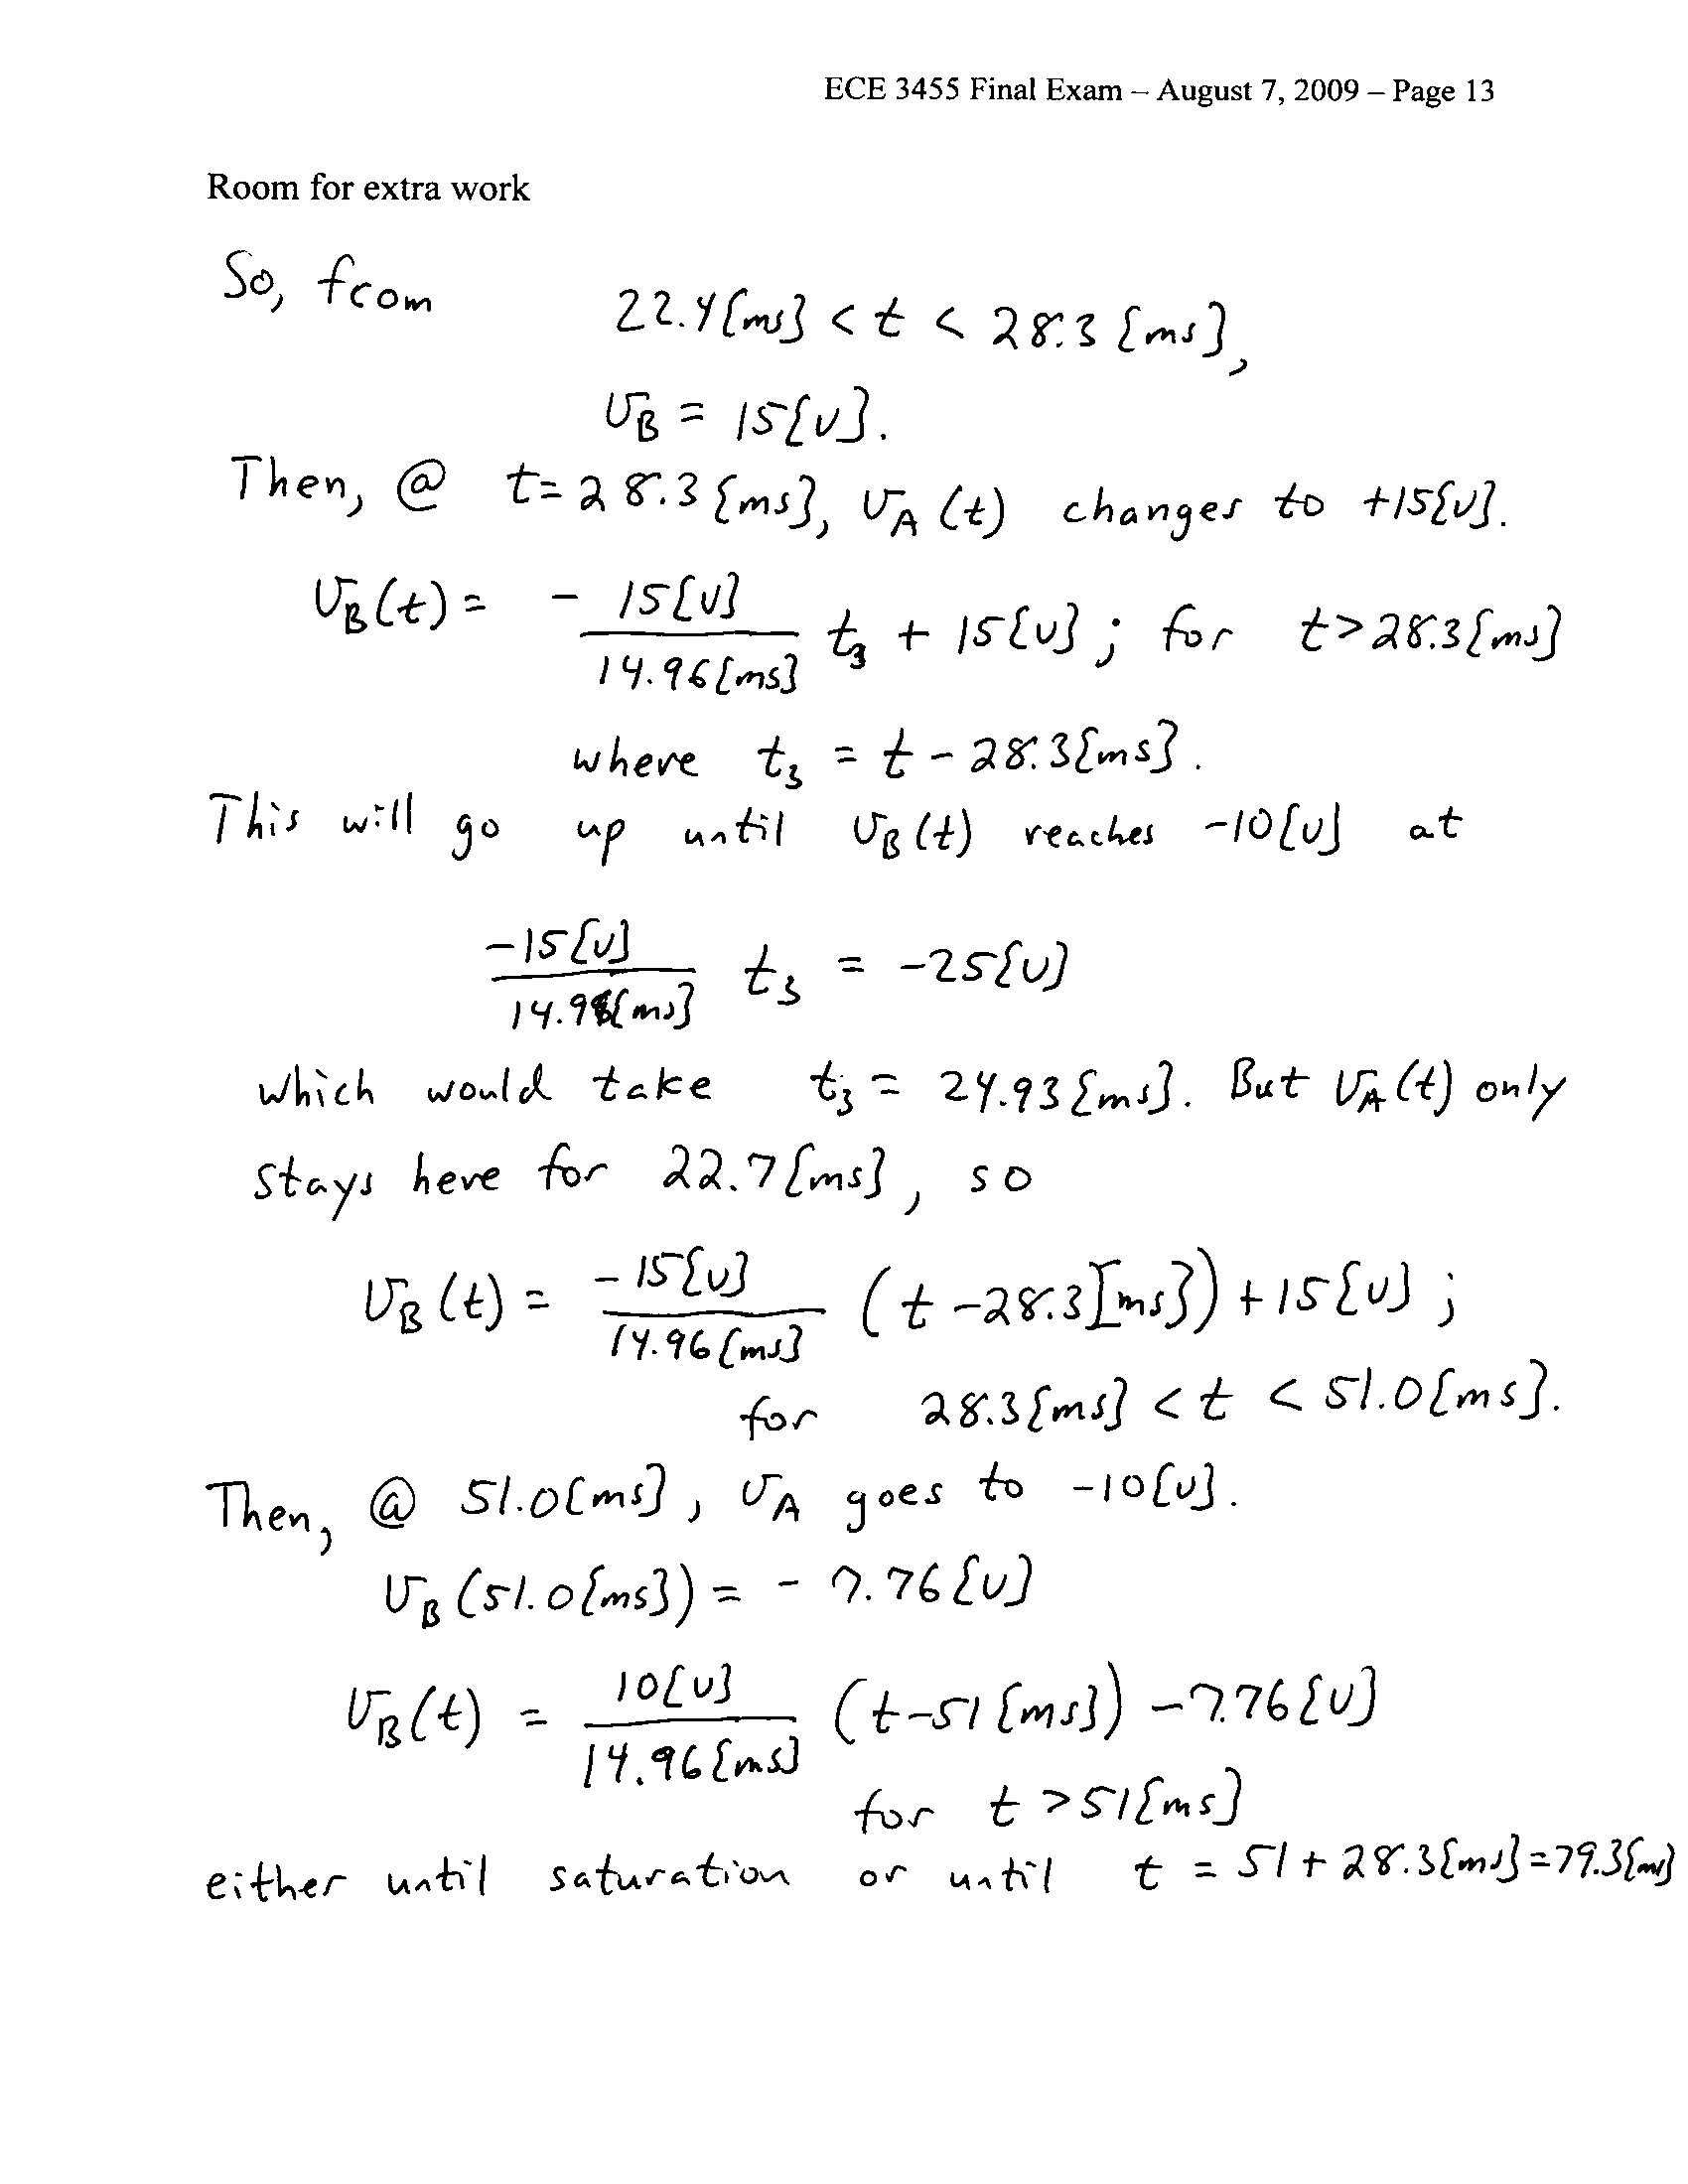 ECE 3455 Final Exam – August 7, 2009 – Page 13
Room for extra work
So, from 22.4{ms} < t < 28.3{ms},
v_B = 15{v}.
Then, @ t = 28.3{ms}, v_A(t) changes to +15{v}.
v_B(t) = - 15{v} / 14.96{ms} t_3 + 15{v} ; for t > 28.3{ms}
where t_3 = t - 28.3{ms}.
This will go up until v_B(t) reaches -10{v} at
-15{v} / 14.96{ms} t_3 = -25{v}
which would take t_3 = 24.93{ms}. But v_A(t) only
stays here for 22.7{ms}, so
v_B(t) = -15{v} / 14.96{ms} (t - 28.3[ms}) + 15{v} ;
for 28.3{ms} < t < 51.0{ms}.
Then, @ 51.0{ms}, v_A goes to -10{v}.
v_B(51.0{ms}) = - 7.76{v}
v_B(t) = 10{v} / 14.96{ms} (t-51{ms}) - 7.76{v}
for t > 51{ms}
either until saturation or until t = 51 + 28.3{ms} = 79.3{ms}